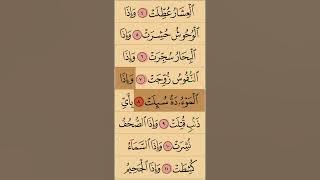 ٱلْعِشَارُ عُطِّلَتْ ٤ وَإِذَا
ٱلْوُحُوشُ حُشِرَتْ ٥ وَإِذَا
ٱلْبِحَارُ سُجِّرَتْ ٦ وَإِذَا
ٱلنُّفُوسُ زُوِّجَتْ ٧ وَإِذَا
ٱلْمَوْءُۥدَةُ سُئِلَتْ ٨ بِأَيِّ
ذَنۢبٍ قُتِلَتْ ٩ وَإِذَا ٱلصُّحُفُ
نُشِرَتْ ١٠ وَإِذَا ٱلسَّمَآءُ
كُشِطَتْ ١١ وَإِذَا ٱلْجَحِيمُ